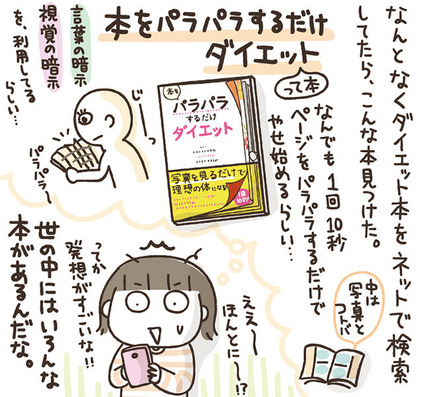 なんとなくダイエット本をネットで検索
してたら、こんな本見つけた。
本をパラパラするだけ
ダイエット
って本
本を
パラパラ
するだけ
ダイエット
写真を見るだけで
理想の体になる
1回
10秒
なんでも1回10秒
ページをパラパラするだけで
やせ始めるらしい…
言葉の暗示
視覚の暗示
を、利用してる
らしい…
じーっ
パラパラ〜
中は
写真と
コトバ
ええ〜
ほんとに〜!?
ってか
発想がすごいな!!
世の中にはいろんな
本があるんだな。